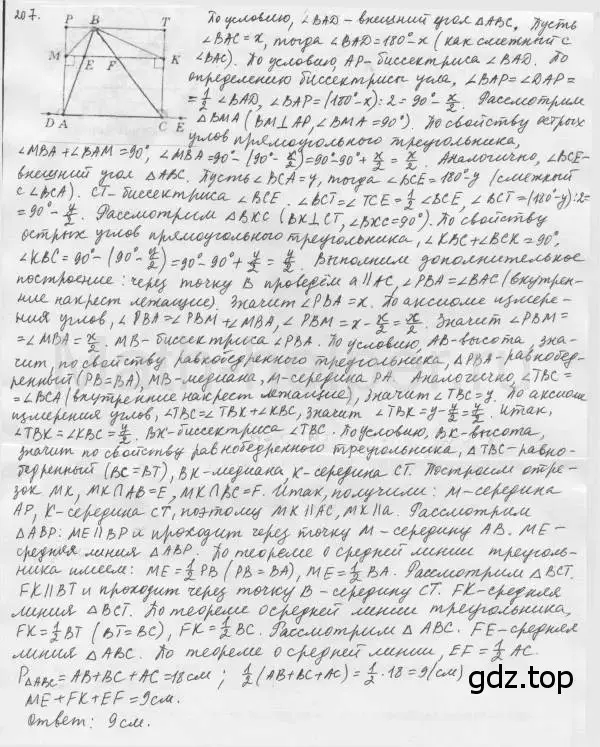 207.
P B T
M E F K
D A C E
По условию, ∠BAD – внешний угол △ABC. Пусть
∠BAC = x, тогда ∠BAD = 180° – x (как смежный с
∠BAC). По условию, AP – биссектриса ∠BAD. По
определению биссектрисы угла, ∠BAP = ∠DAP =
= 1/2 ∠BAD, ∠BAP = (180° – x) : 2 = 90° – x/2. Рассмотрим
△BMA (BM⊥AP, ∠BMA = 90°). По свойству острых
углов прямоугольного треугольника,
∠MBA + ∠BAM = 90°, ∠MBA = 90° – (90° – x/2) = 90° – 90° + x/2 = x/2. Аналогично, ∠BCE –
внешний угол △ABC. Пусть ∠BCA = y, тогда ∠BCE = 180° – y (смежный
с ∠BCA). CT – биссектриса ∠BCE. ∠BCT = ∠TCE = 1/2 ∠BCE, ∠BCT = (180° – y) : 2 =
= 90° – y/2. Рассмотрим △BKC (BK⊥CT, ∠BKC = 90°). По свойству
острых углов прямоугольного треугольника, ∠KBC + ∠BCK = 90°,
∠KBC = 90° – (90° – y/2) = 90° – 90° + y/2 = y/2. Выполним дополнительное
построение: через точку B проведём a || AC, ∠PBA = ∠BAC (внутрен-
ние накрест лежащие). Значит ∠PBA = x. По аксиоме измере-
ния углов, ∠PBA = ∠PBM + ∠MBA, ∠PBM = x – x/2 = x/2. Значит ∠PBM =
= ∠MBA = x/2. MB – биссектриса ∠PBA. По условию, AB – высота, зна-
чит, по свойству равнобедренного треугольника, △PBA – равнобед-
ренный (PB = BA), MB – медиана, M – середина PA. Аналогично, ∠TBC =
= ∠BCA (внутренние накрест лежащие), значит ∠TBC = y. По аксиоме
измерения углов, ∠TBC = ∠TBK + ∠KBC, значит ∠TBK = y – y/2 = y/2. Итак,
∠TBK = ∠KBC = y/2. BK – биссектриса ∠TBC. По условию, BK – высота,
значит по свойству равнобедренного треугольника, △TBC – равно-
бедренный (BC = BT), BK – медиана, K – середина CT. Построим отре-
зок MK, MK∩AB = E, MK∩BC = F. Итак, получили: M – середина
AP, K – середина CT, поэтому MK || AC, MK || a. Рассмотрим
△ABP: ME || BP и проходит через точку M – середину AB. ME –
средняя линия △ABP. По теореме о средней линии треуголь-
ника имеем: ME = 1/2 PB (PB = BA), ME = 1/2 BA. Рассмотрим △BCT.
FK || BT и проходит через точку B – середину CT. FK – средняя
линия △BCT. По теореме о средней линии треугольника,
FK = 1/2 BT (BT = BC), FK = 1/2 BC. Рассмотрим △ABC. FE – средняя
линия △ABC. По теореме о средней линии, EF = 1/2 AC.
P△ABC = AB + BC + AC = 18 см ; 1/2 (AB + BC + AC) = 1/2 · 18 = 9 (см)
ME + FK + EF = 9 см.
Ответ: 9 см.
gdz.top